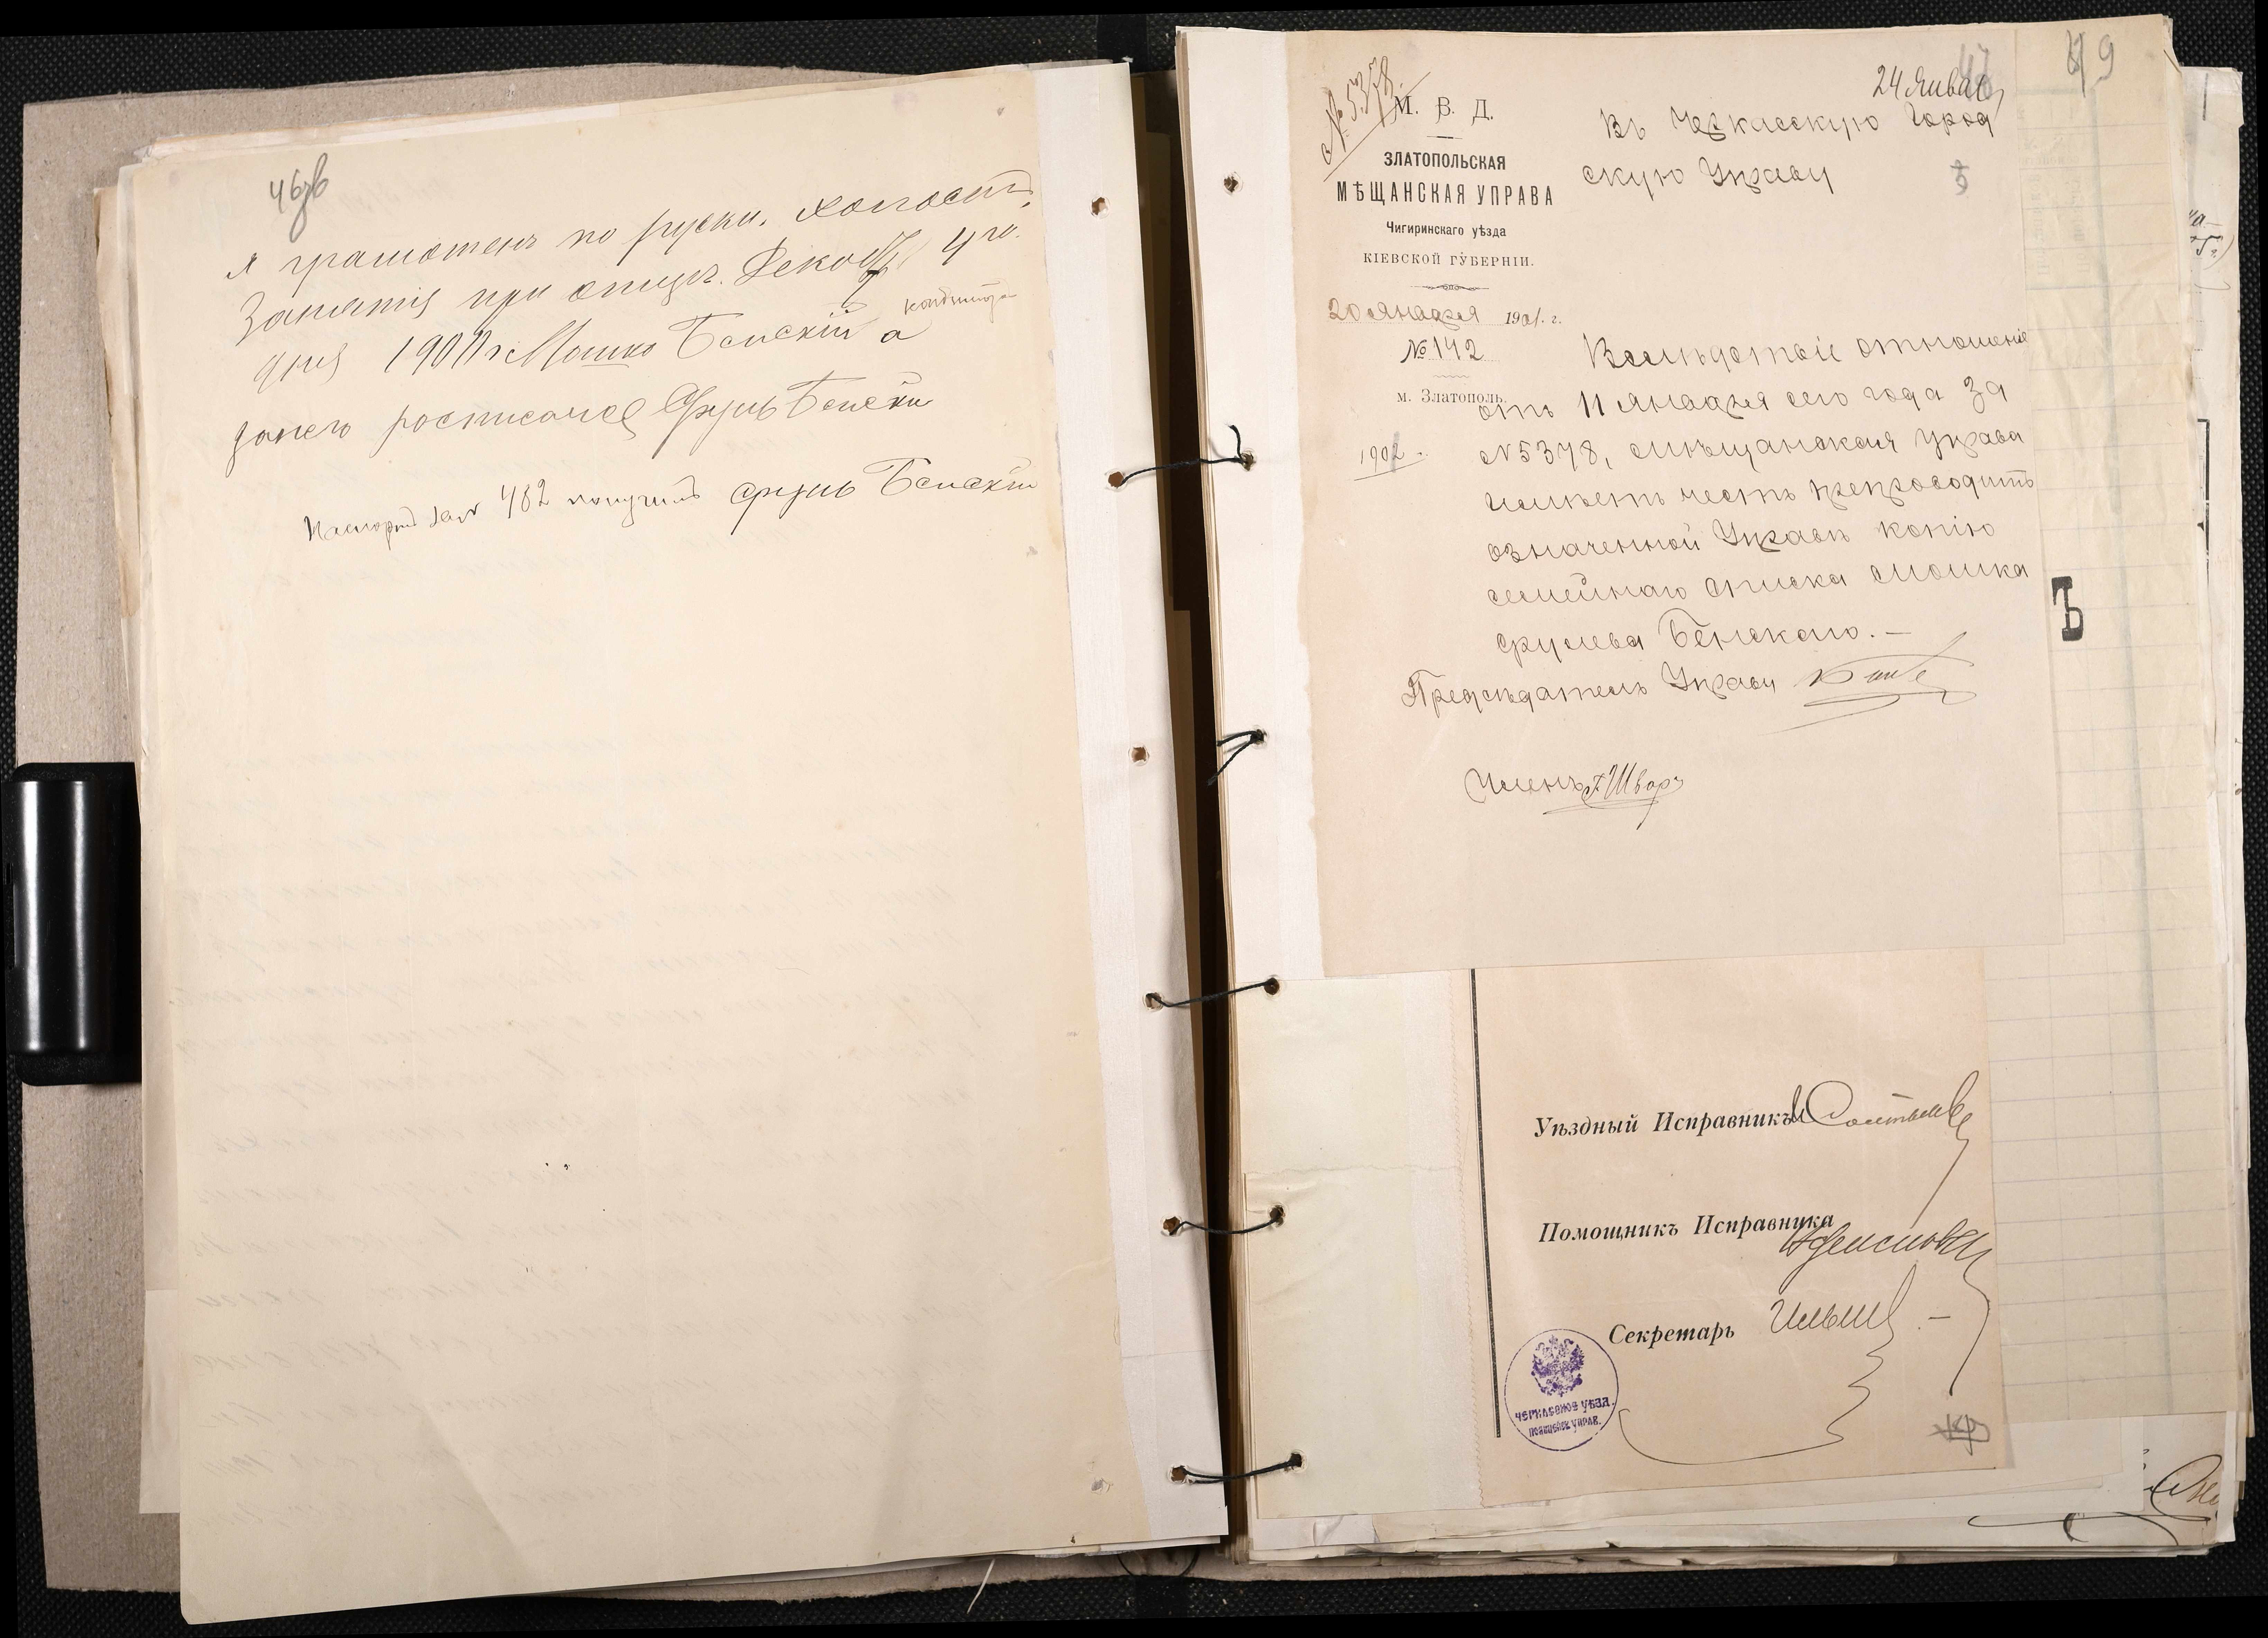 46зв
я грамотенъ по руски, холостъ,
Занятія при отцѣ. Декабр 4го
дня 1901 г Мошко Бенскій а
за него росписался Сруль Бенскій
Паспортъ за № 482 получилъ Сруль Бенскій
49
№ 5378.
24 Января
М. В. Д.
ЗЛАТОПОЛЬСКАЯ
МѢЩАНСКАЯ УПРАВА
Чигиринскаго уѣзда
КІЕВСКОЙ ГУБЕРНІИ.
20 января 1901. г.
№ 142
м. Златополь.
1902
Въ Черкасскую Город
скую Управу
Вслѣдствіе отношенія
отъ 11 января сего года за
№ 5378, мѣщанская управа
имѣетъ честь препроводить
означенной Управѣ копію
семейнаго списка Мошка
Срулева Бенскаго.—
Предсѣдатель Управы
Членъ Г. Шварц
Ъ
Уѣздный Исправникъ
Помощникъ Исправника
Секретарь Ильин
ЧЕРКАССКОЕ УѢЗД.
ПОЛИЦЕЙСК. УПРАВ.